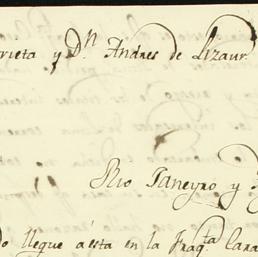 rrieta y Dⁿ Andres de Lizaur
Rio Janeyro y
llegue á esta en la Fragᵗᵃ